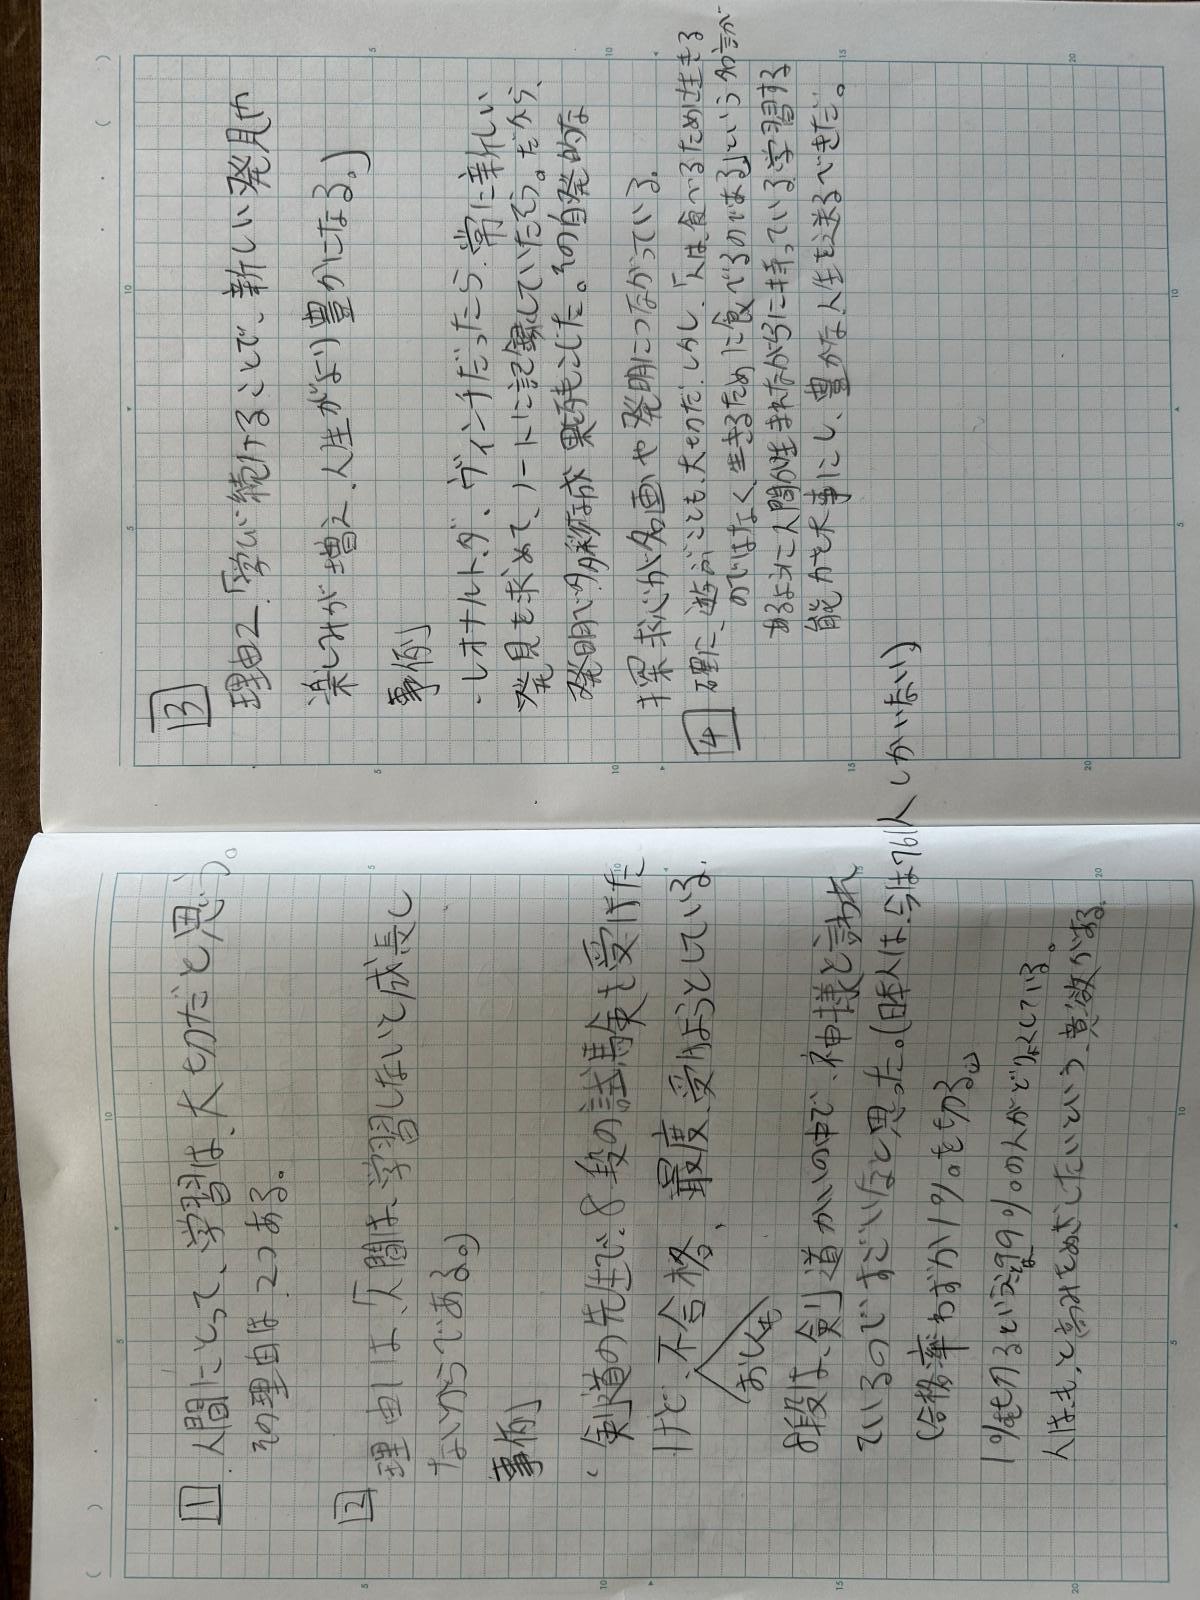 1 人間にとって、学習は、大切だと思う。
その理由は2つある。
2 理由1は、「人間は、学習しないと成長し
ないからである。」
事例
・剣道の先生で、8段の試験を受けた
けど、不合格、最度、受けようとしている。
おしくも
8段は、剣道かいの中で、神様と言われ
ているのですごいなと思った。(日本人は、今は761人しかいない)
(合格率わずか1%をも切る。)
1%をも切るということは99%の人がどりょくしている。
人はもっと高みをめざしたいという、意欲がある。
3
理由2、「学び続けることで、新しい発見や
楽しみが増え、人生がより豊かになる。」
事例
・レオナルトダ、ヴィンチだったら、常に新しい
発見を求めて、ノートに記録していたそう。だから、
発明で多彩な成果をもこした。その自発的な
探求心が名画や発明につながっている。
4 確に、遊ぶことも、大切だ。しかし、「人は、食べるために生きる
のではなく、生きるために食べるのである」という名言が
あるように人間が生まれながらに持っている学習する
能力を大事にし、豊かな人生を送るべきだ。